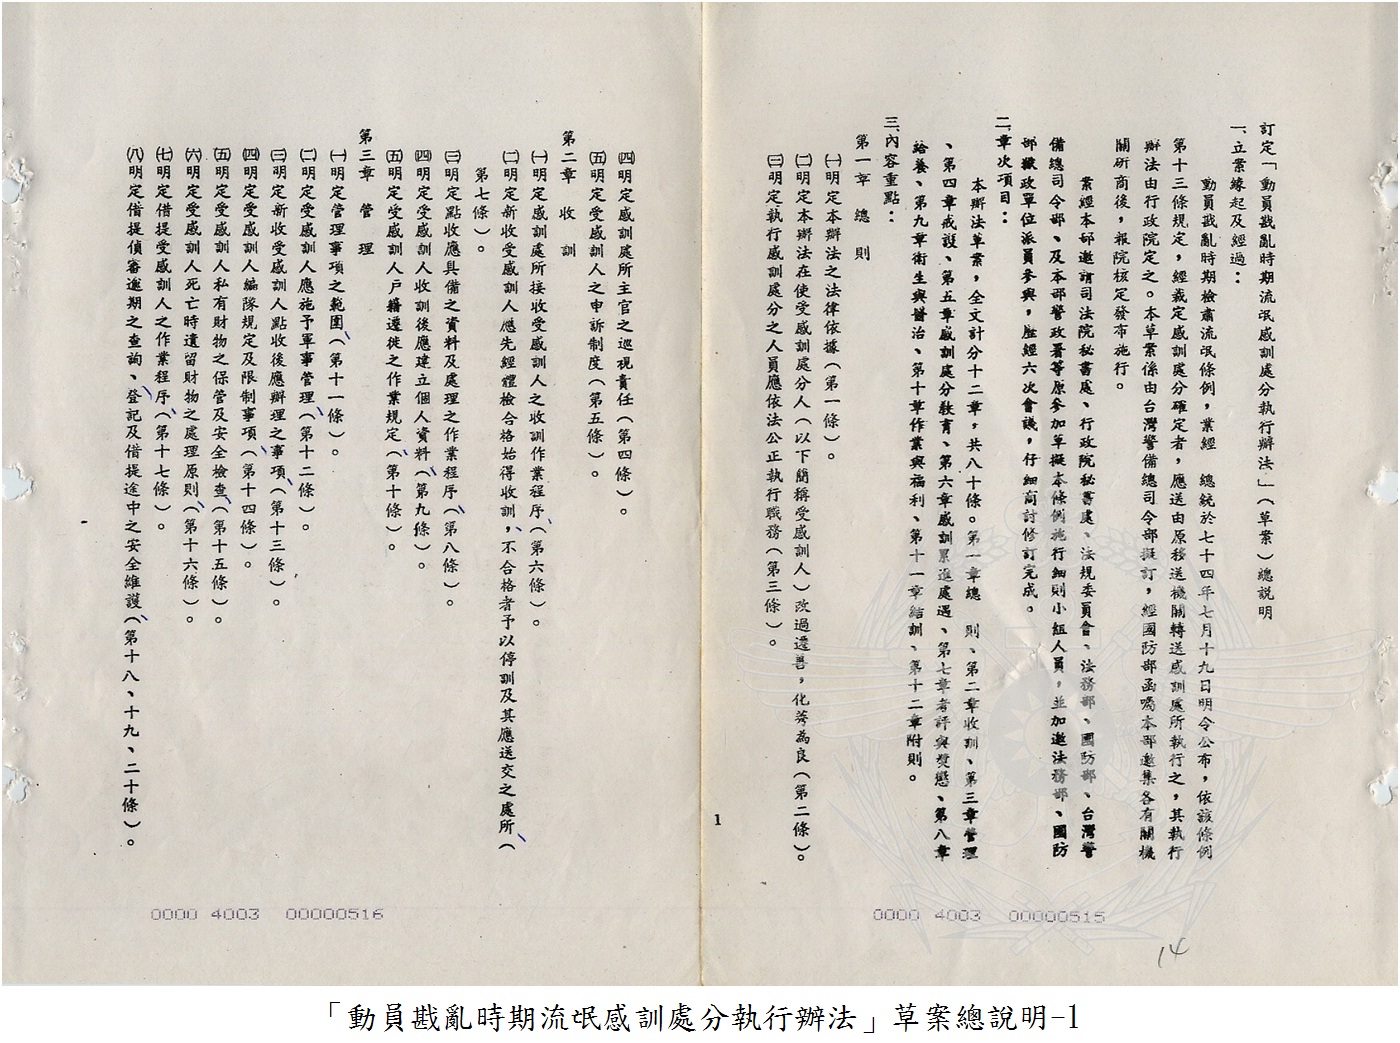 訂定「動員戡亂時期流氓感訓處分執行辦法」（草案）總說明
一、立案緣起及經過：
動員戡亂時期檢肅流氓條例，業經　總統於七十四年七月十九日明令公布，依該條例
第十三條規定，經裁定感訓處分確定者，應送由原移送機關轉送感訓處所執行之，其執行
辦法由行政院定之。本草案係由台灣警備總司令部擬訂，經國防部函囑本部邀集各有關機
關研商後，報院核定發布施行。
案經本部邀請司法院秘書處、行政院秘書處、法規委員會、法務部、國防部、台灣警
備總司令部、及本部警政署等原參加草擬本條例施行細則小組人員，並加邀法務部、國防
部獄政單位派員參與，歷經六次會議，仔細商討修訂完成。
二、章次項目：
本辦法草案，全文計分十二章，共八十條。第一章總　則、第二章收訓、第三章管理
、第四章戒護、第五章感訓處分教育、第六章感訓累進處遇、第七章考評與獎懲、第八章
給養、第九章衛生與醫治、第十章作業與福利、第十一章結訓、第十二章附則。
三、內容重點：
第一章　總　則
㈠明定本辦法之法律依據（第一條）。
㈡明定本辦法在使受感訓處分人（以下簡稱受感訓人）改過遷善，化莠為良（第二條）。
㈢明定執行感訓處分之人員應依法公正執行職務（第三條）。
1
0000 4003 00000515
14
㈣明定感訓處所主官之巡視責任（第四條）。
㈤明定受感訓人之申訴制度（第五條）。
第二章　收　訓
㈠明定感訓處所接收受感訓人之收訓作業程序（第六條）。
㈡明定新收受感訓人應先經體檢合格始得收訓，不合格者予以停訓及其應送交之處所（
第七條）。
㈢明定點收應具備之資料及處理之作業程序（第八條）。
㈣明定受感訓人收訓後應建立個人資料（第九條）。
㈤明定受感訓人戶籍遷徙之作業規定（第十條）。
第三章　管　理
㈠明定管理事項之範圍（第十一條）。
㈡明定受感訓人應施予軍事管理（第十二條）。
㈢明定新收受感訓人點收後應辦理之事項（第十三條）。
㈣明定受感訓人編隊規定及限制事項（第十四條）。
㈤明定受感訓人私有財物之保管及安全檢查（第十五條）。
㈥明定受感訓人死亡時遺留財物之處理原則（第十六條）。
㈦明定借提受感訓人之作業程序（第十七條）。
㈧明定借提偵審逾期之查詢、登記及借提途中之安全維護（第十八、十九、二十條）。
0000 4003 00000516
「動員戡亂時期流氓感訓處分執行辦法」草案總說明-1